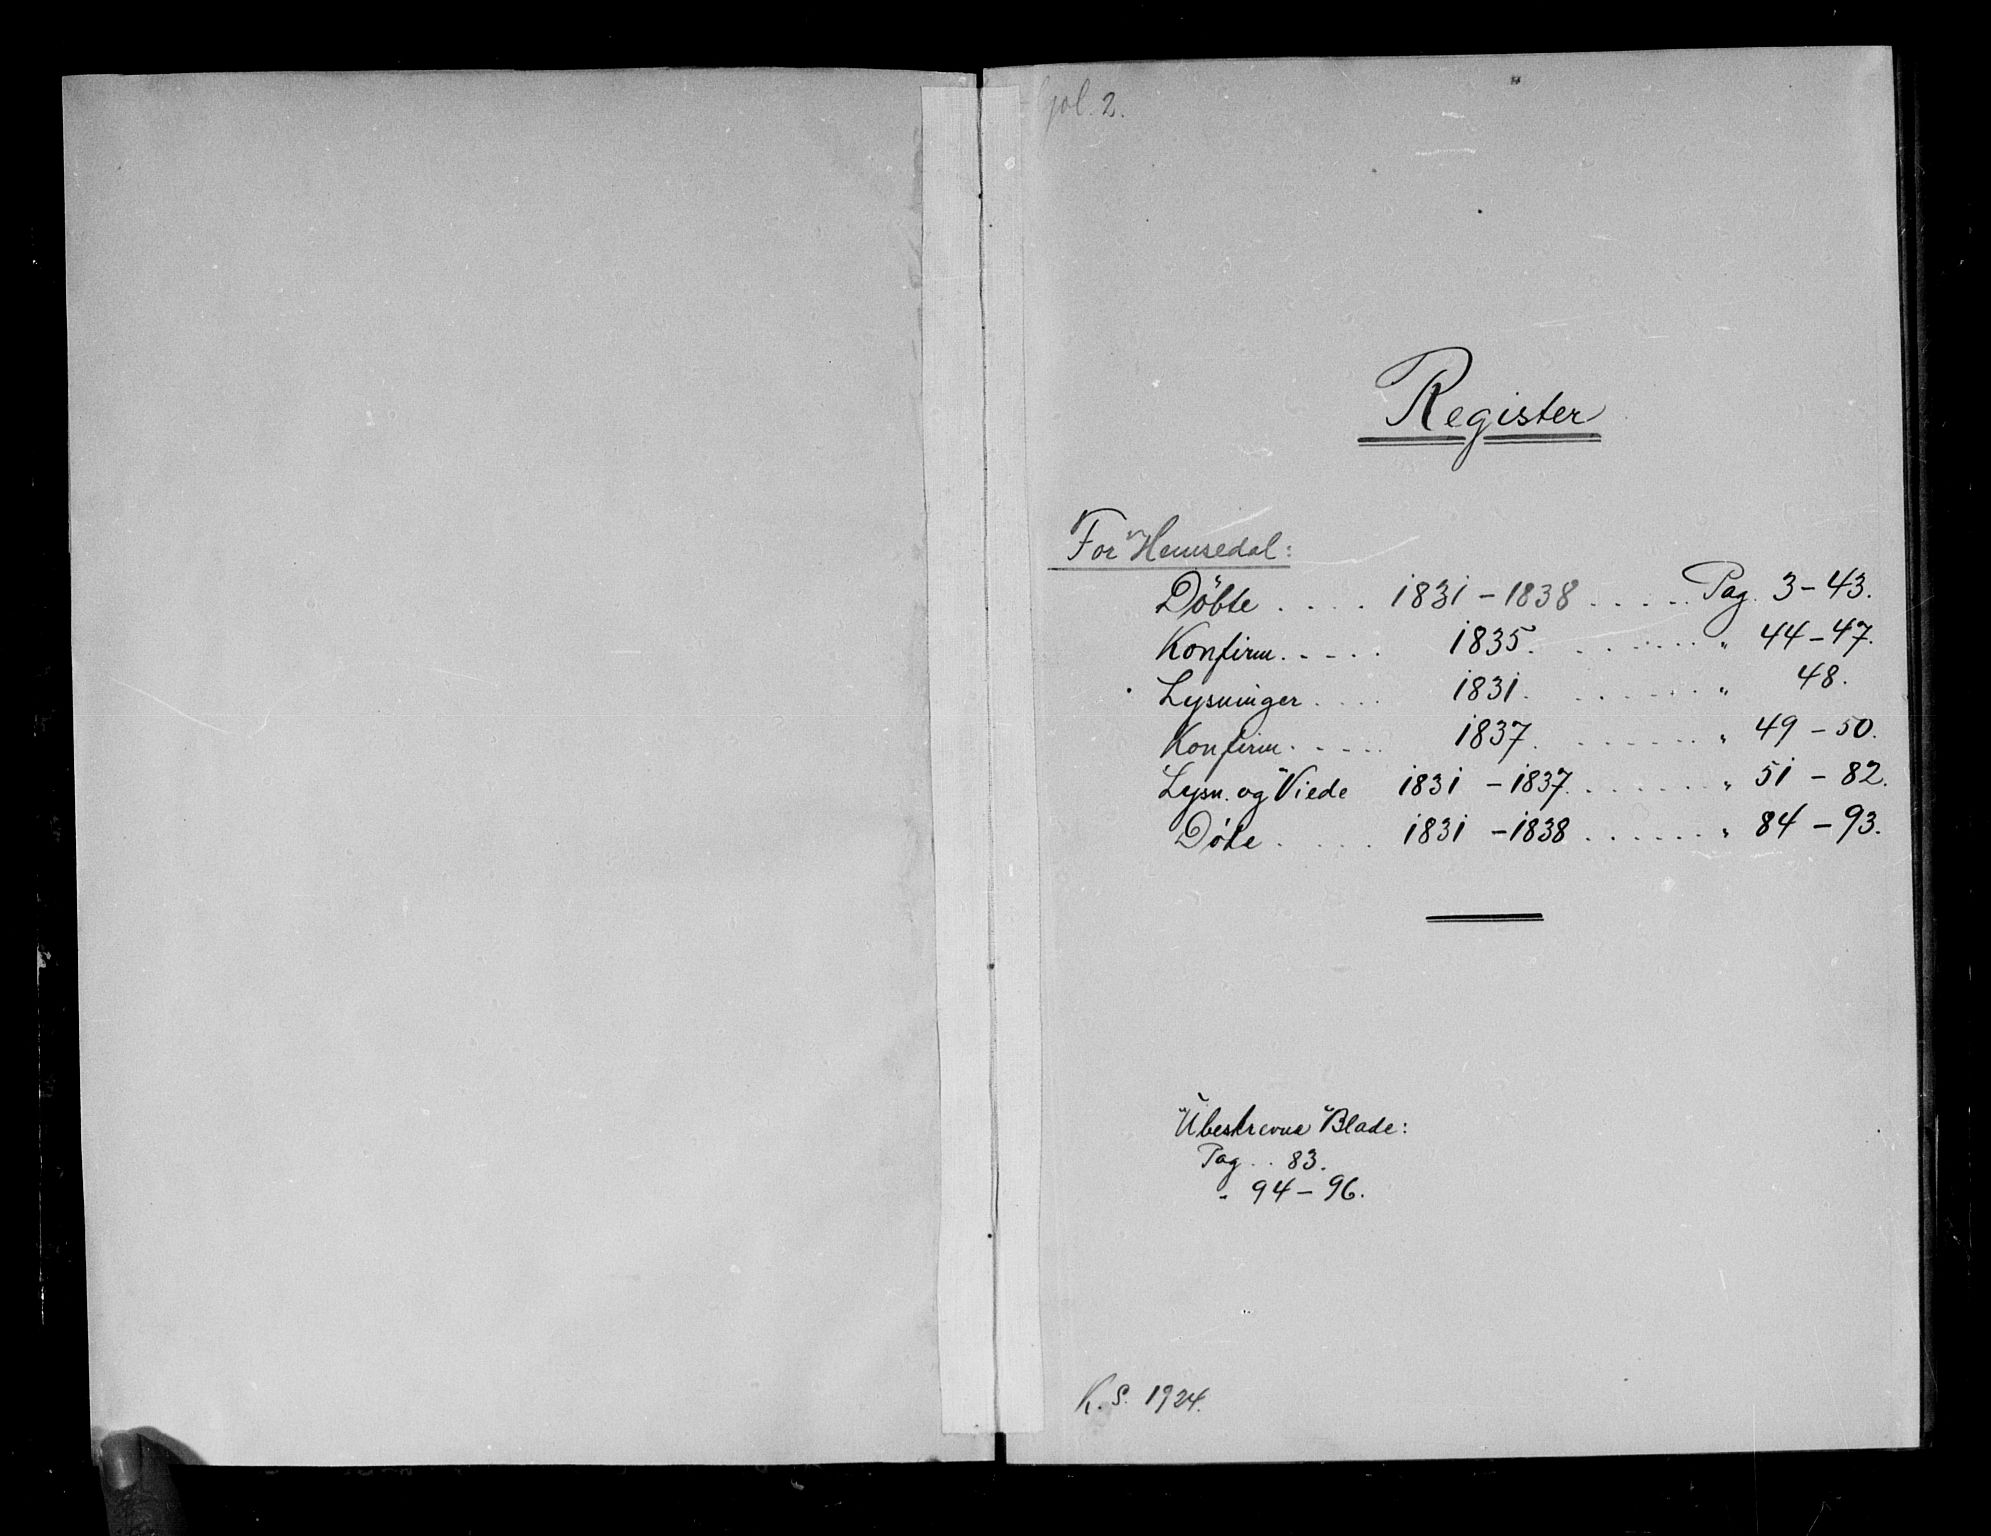 Gol. 2.
Register
For Hemsedal:
Döbte .... 1831 - 1838 ..... Pag. 3 - 43.
Konfirm. .... 1835. ...... " 44 - 47.
Lysninger .... 1831. ...... " 48.
Konfirm. .... 1837. ...... " 49 - 50.
Lysn. og Viede 1831 - 1837 ...... " 51 - 82.
Døde .... 1831 - 1838 ...... " 84 - 93.
Ubeskrevne Blade:
Pag .. 83.
" 94 - 96.
K. S. 1924.